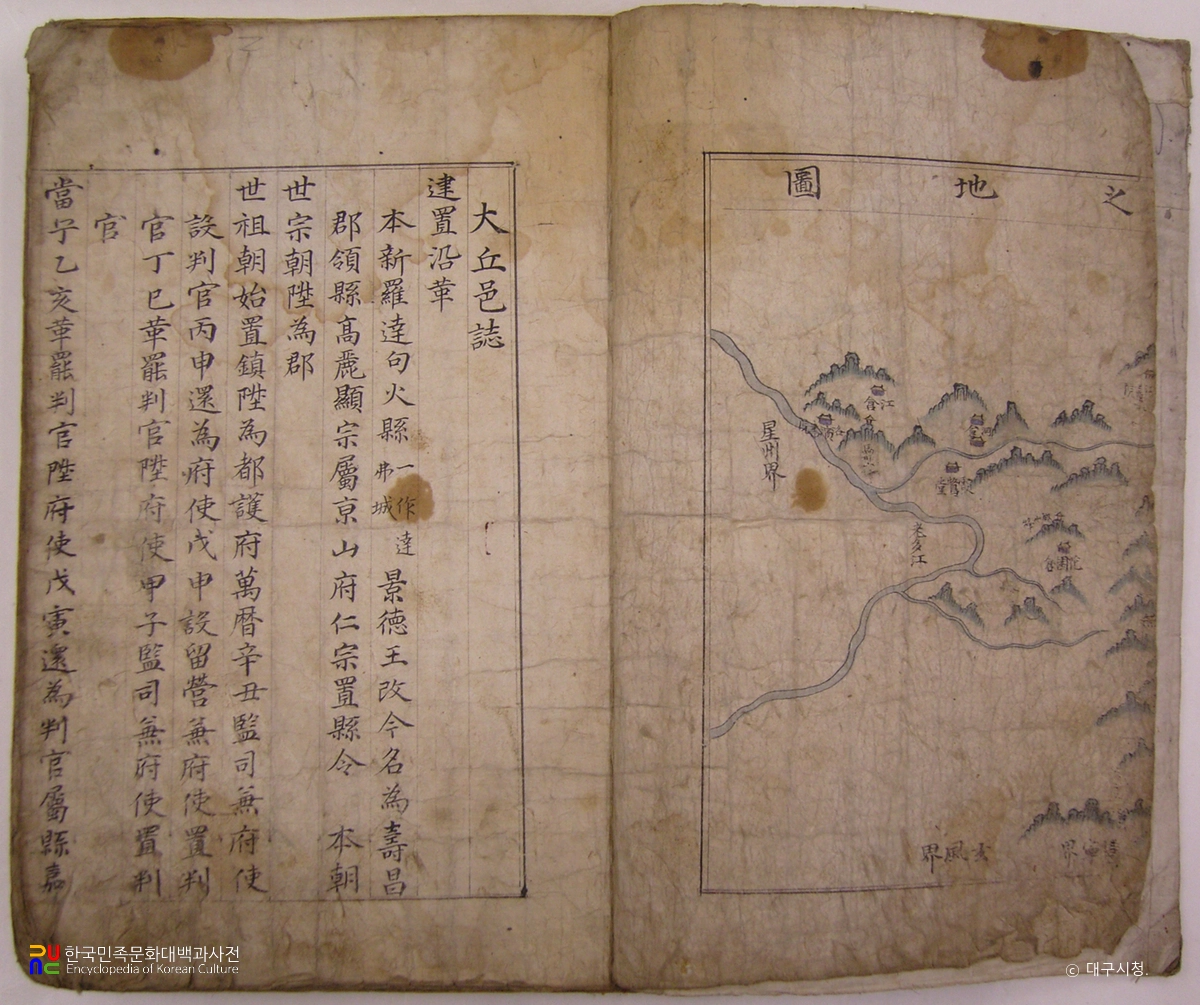 圖地之
星州界
江倉
老多江
玄風界
界
大丘邑誌
建置沿革
本新羅達句火縣一作達弗城景德王改今名為壽昌
郡領縣高麗顯宗屬京山府仁宗置縣令 本朝
世宗朝陞為郡
世祖朝始置鎮陞為都護府萬曆辛丑監司兼府使
設判官丙申還為府使戊申設留營兼府使置判
官丁巳革罷判官陞府使甲子監司兼府使置判
官
當宁乙亥革罷判官陞府使戊寅還為判官屬縣嘉
한국민족문화대백과사전
Encyclopedia of Korean Culture
© 대구시청.